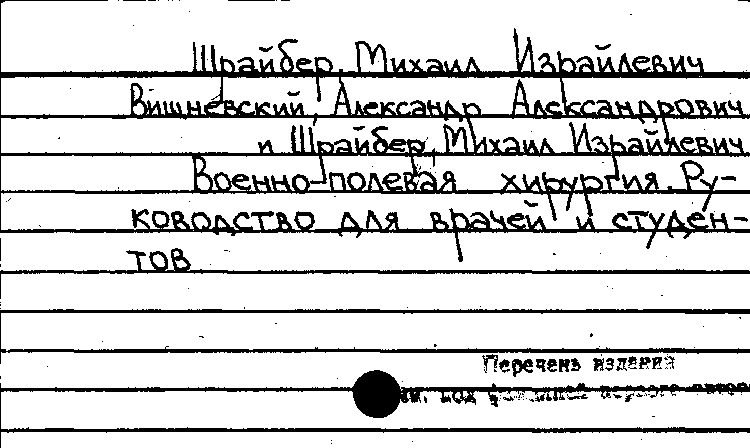 Шрайбер, Михаил Израйлевич
Вишневский, Александр Александрович
и Шрайбер, Михаил Израйлевич
Военно-полевая хирургия. Ру-
ководство для врачей и студен-
тов
Перечень издания
под фамилией первого